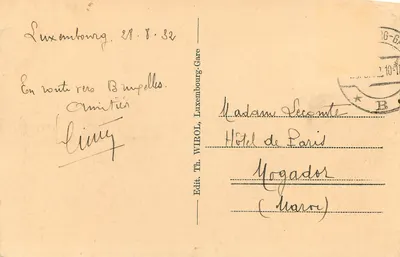 Luxembourg. 28.8.32
En route vers Bruxelles.
Amitiés
Edit. Th. WIROL, Luxembourg-Gare
Madame Lecomte
Hôtel de Paris
Mogador
(Maroc)
B